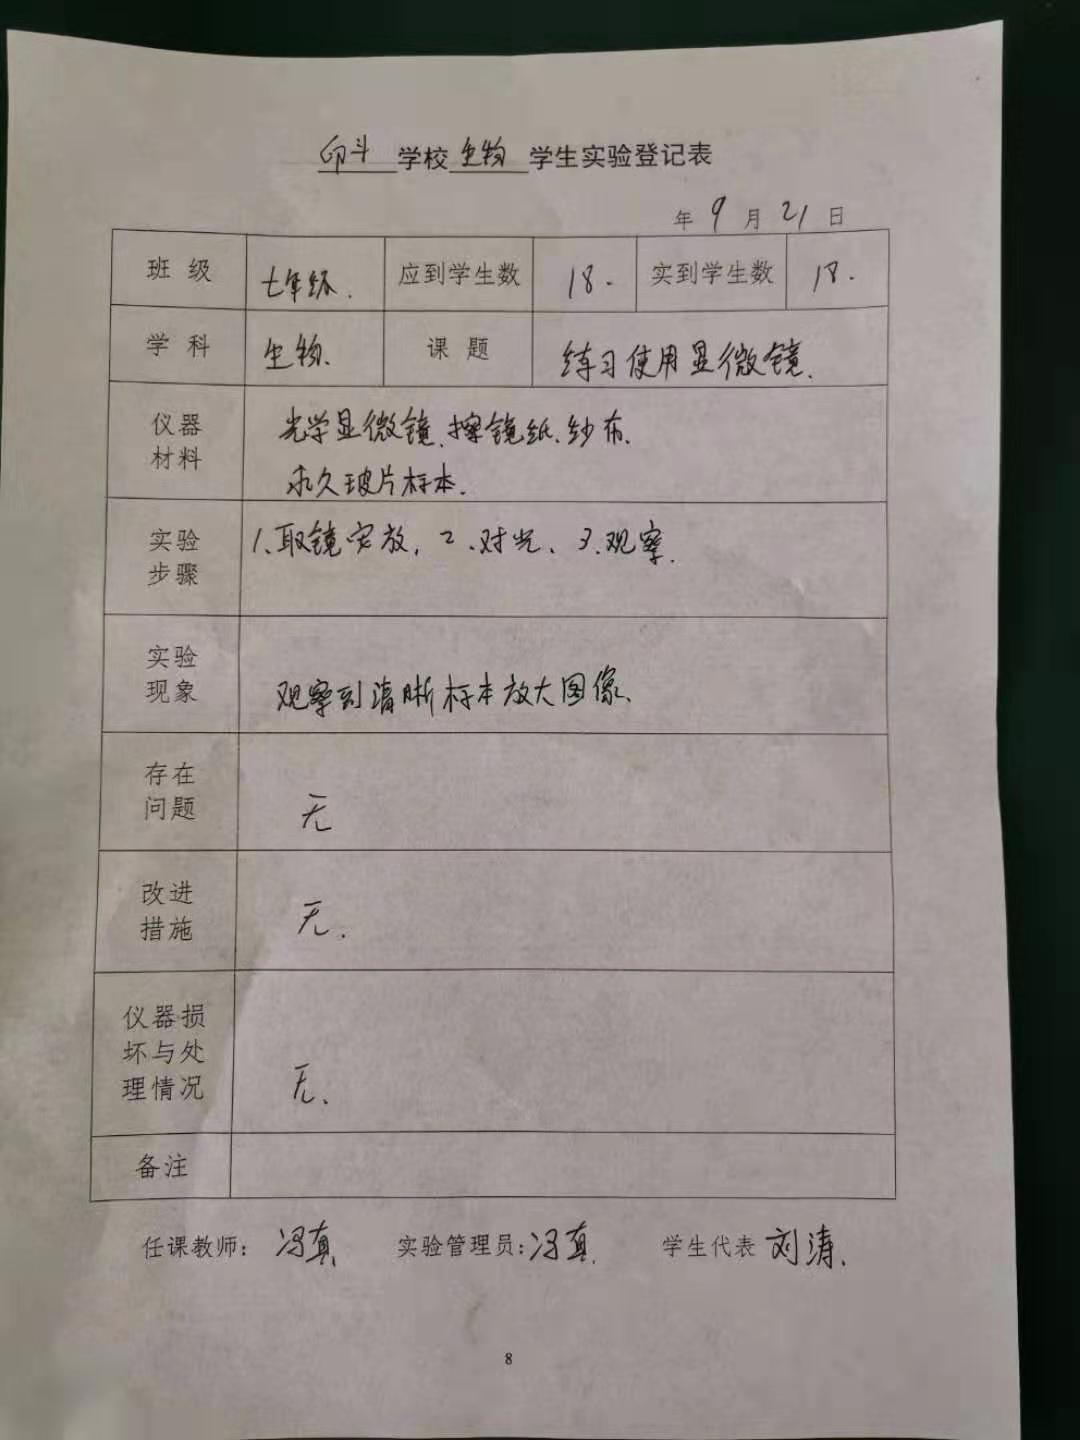 印斗学校生物学生实验登记表
年9月21日
班级 七年级. 应到学生数 18. 实到学生数 18.
学科 生物. 课题 练习使用显微镜.
仪器材料 光学显微镜、擦镜纸、纱布、
永久玻片标本.
实验步骤 1、取镜安放, 2、对光、3、观察.
实验现象 观察到清晰标本放大图像、
存在问题 无
改进措施 无.
仪器损坏与处理情况 无.
备注
任课教师: 冯真 实验管理员: 冯真. 学生代表 刘涛.
8